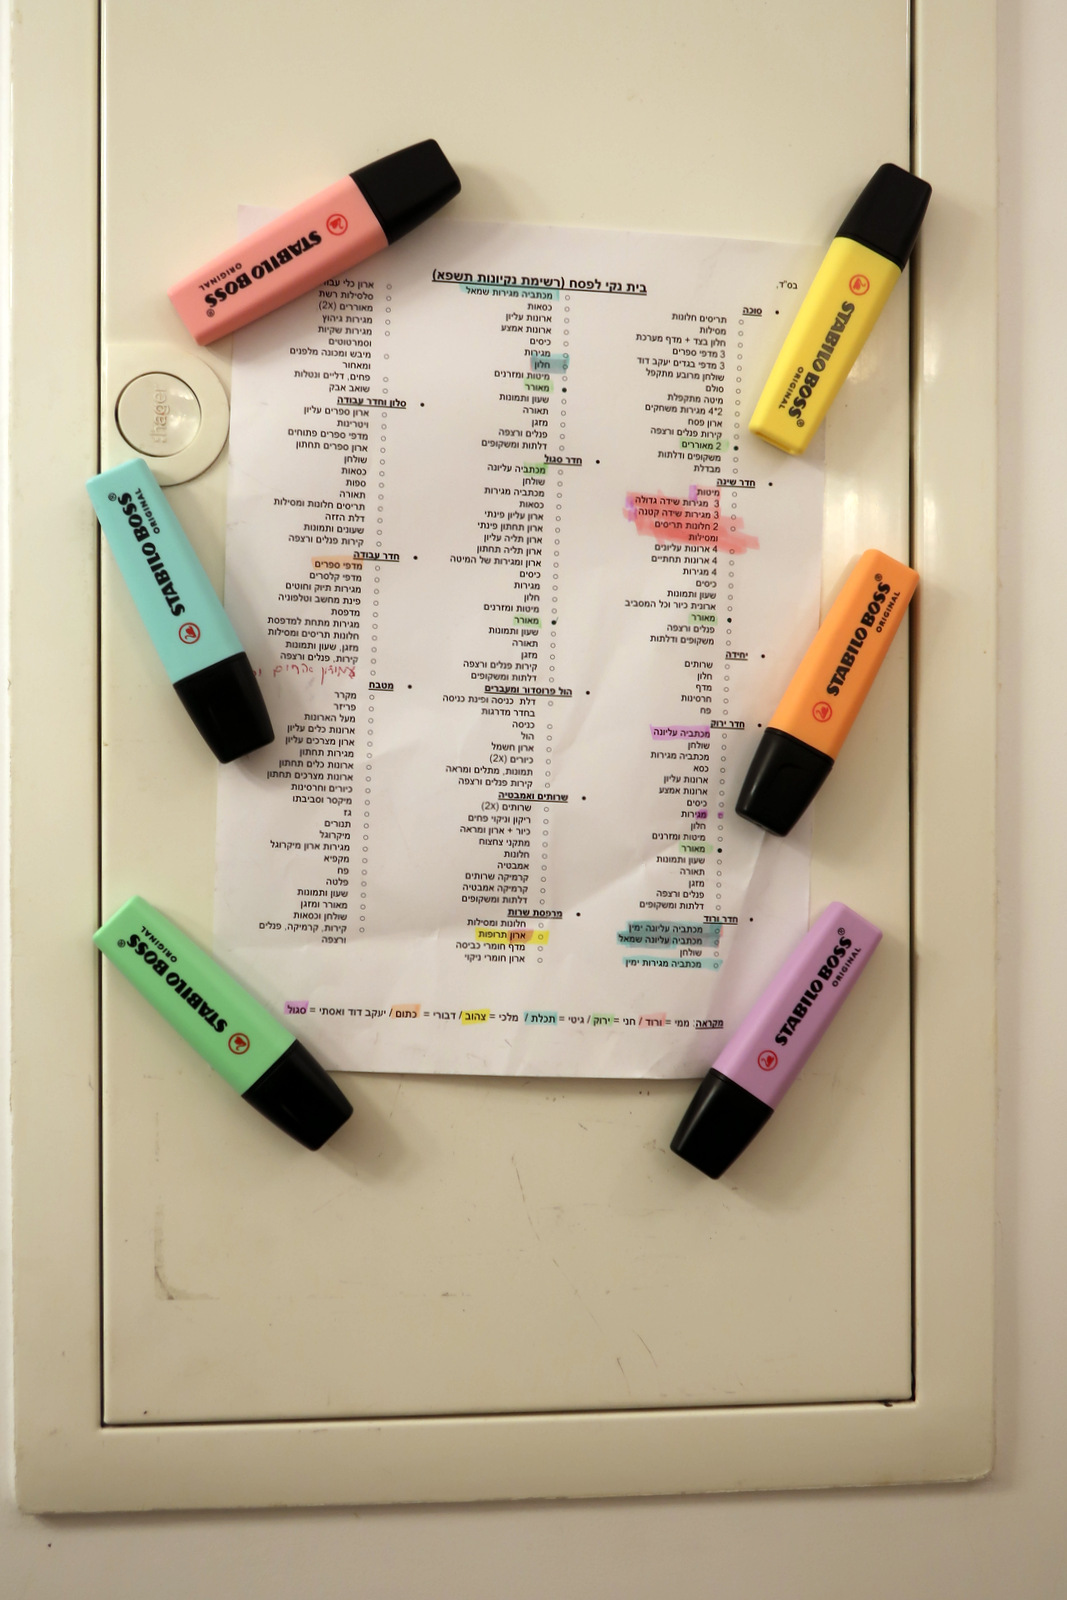 בס"ד.
בית נקי לפסח (רשימת נקיונות תשפא)
סוכה
תריסים חלונות
מסילות
חלון בצד + מדף מערכת
3 מדפי ספרים
3 מדפי בגדים יעקב דוד
שולחן מרובע מתקפל
סולם
מיטה מתקפלת
4*2 מגירות משחקים
ארון פסח
קירות פנלים ורצפה
2 מאוררים
משקופים ודלתות
מבדלת
חדר שינה
מיטות
3 מגירות שידה גדולה
3 מגירות שידה קטנה
2 חלונות תריסים
ומסילות
4 ארונות עליונים
4 ארונות תחתיים
4 מגירות
כיסים
שעון ותמונות
ארונית כיור וכל המסביב
מאורר
פנלים ורצפה
משקופים ודלתות
יחידה
שרותים
חלון
מדף
חרסינות
פח
חדר ירוק
מכתביה עליונה
שולחן
מכתביה מגירות
כסא
ארונות עליון
ארונות אמצע
כיסים
מגירות
חלון
מיטות ומזרנים
מאורר
שעון ותמונות
תאורה
מזגן
פנלים ורצפה
דלתות ומשקופים
חדר ורוד
מכתביה עליונה ימין
מכתביה עליונה שמאל
שולחן
מכתביה מגירות ימין
מכתביה מגירות שמאל
כסאות
ארונות עליון
ארונות אמצע
כיסים
מגירות
חלון
מיטות ומזרנים
מאורר
שעון ותמונות
תאורה
מזגן
פנלים ורצפה
דלתות ומשקופים
חדר סגול
מכתביה עליונה
שולחן
מכתביה מגירות
כסאות
ארון עליון פינתי
ארון תחתון פינתי
ארון תליה עליון
ארון תליה תחתון
ארון ומגירות של המיטה
כיסים
מגירות
חלון
מיטות ומזרנים
מאורר
שעון ותמונות
תאורה
מזגן
קירות פנלים ורצפה
דלתות ומשקופים
הול פרוסדור ומעברים
דלת כניסה ופינת כניסה
בחדר מדרגות
כניסה
הול
ארון חשמל
כיורים (2X)
תמונות, מתלים ומראה
קירות פנלים ורצפה
שרותים ואמבטיה
שרותים (2X)
ריקון וניקוי פחים
כיור + ארון ומראה
מתקני צחצוח
חלונות
אמבטיה
קרמיקה שרותים
קרמיקה אמבטיה
דלתות ומשקופים
מרפסת שרות
חלונות ומסילות
ארון תרופות
מדף חומרי כביסה
ארון חומרי ניקוי
ארון כלי
סלסילות רשת
מאוררים (2X)
מגירות גיהוץ
מגירות שקיות
וסמרטוטים
מיבש ומכונה מלפנים
ומאחור
פחים, דליים ונטלות
שואב אבק
סלון וחדר עבודה
ארון ספרים עליון
ויטרינות
מדפי ספרים פתוחים
ארון ספרים תחתון
שולחן
כסאות
ספות
תאורה
תריסים חלונות ומסילות
דלת הזזה
שעונים ותמונות
קירות פנלים ורצפה
חדר עבודה
מדפי ספרים
מדפי קלסרים
מגירות תיוק וחוטים
פינת מחשב וטלפוניה
מדפסת
מגירות מתחת למדפסת
חלונות תריסים ומסילות
מזגן, שעון ותמונות
קירות, פנלים ורצפה
מטבח
מקרר
פריזר
מעל הארונות
ארונות כלים עליון
ארון מצרכים עליון
מגירות תחתון
ארונות כלים תחתון
ארונות מצרכים תחתון
כיורים וחרסינות
מיקסר וסביבתו
גז
תנורים
מיקרוגל
מגירות ארון מיקרוגל
מקפיא
פח
פלטה
שעון ותמונות
מאורר ומזגן
שולחן וכסאות
קירות, קרמיקה, פנלים
ורצפה
מקראה: ממי = ורוד / חני = ירוק / גיטי = תכלת / מלכי = צהוב / דבורי = כתום / יעקב דוד ואסתי = סגול
STABILO BOSS®
ORIGINAL
STABILO BOSS®
ORIGINAL
STABILO BOSS®
ORIGINAL
STABILO BOSS®
ORIGINAL
STABILO BOSS®
ORIGINAL
STABILO BOSS®
ORIGINAL
hager